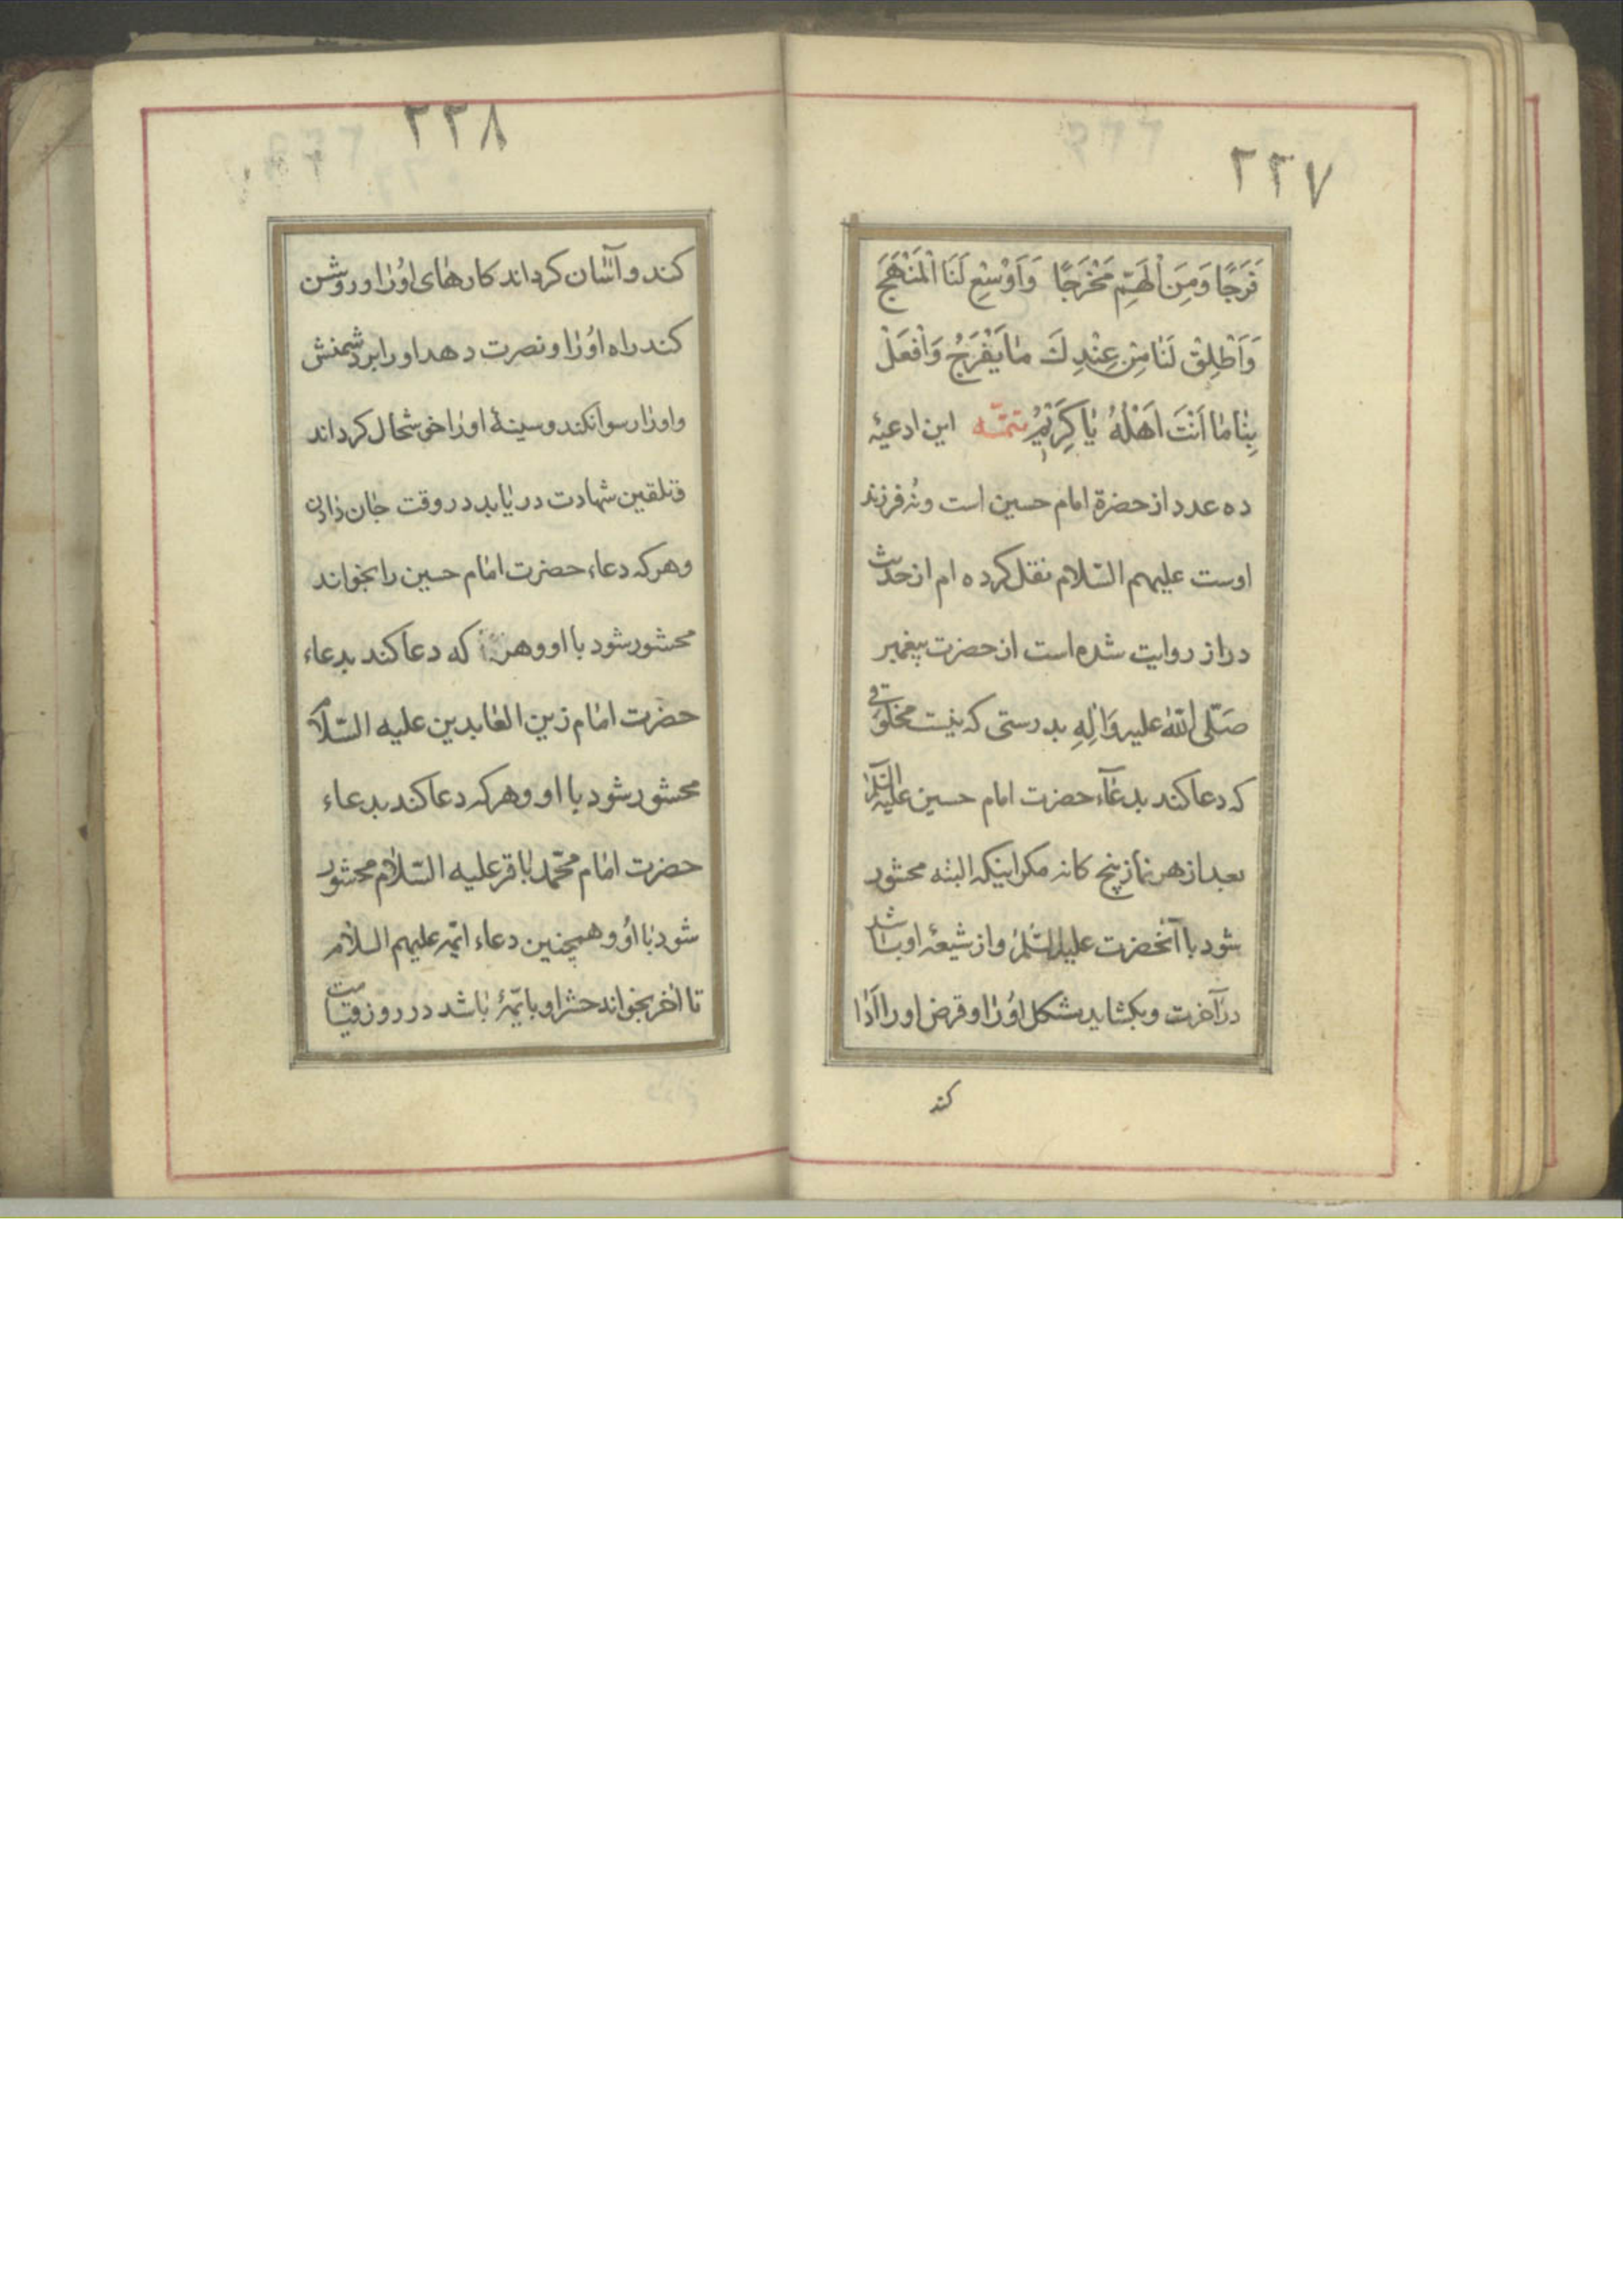 ۲۲۷
فَرَجًا وَمِنَ الْهَمِّ مَخْرَجًا وَاَوْسِعْ لَنَا الْمَنْهَجَ
وَاَطْلِقْ لَنَا مِنْ عِنْدِكَ مٰا يَفْرَجُ وَافْعَلْ
بِنٰا مٰا اَنْتَ اَهْلُهُ يٰا كَرِيْمُ تتمّه این ادعیهٔ
ده عدد از حضرة امام حسین است ونُه فرزند
اوست علیهم السّلام نقل کرده ام از حدیث
دراز روایت شده است از حضرت پیغمبر
صَلّی اللّهُ علیه وَاٰلِهِ بدرستی که نیست مخلوقی
که دعا کند بدعآء حضرت امام حسین علیه السّلام
بعد از هر نماز پنج کانه مکر اینکه البته محشور
شود با آنحضرت علیه السّلم واز شیعهٔ او باشد
در آخرت وبکشاید مشکل اوُرٰا وقرض اورا اَدٰا
کند
۲۲۸
کند وآسٰان کرداند کارهٰای اوُرٰا وروشن
کند راه اوُرٰا ونصرت دهد اورا بر دشمنش
واورٰا رسوا نکند وسینهٔ اورٰا خوشحال کرداند
وتلقین شهادت دریٰابد در وقت جٰان دٰادن
وهرکه دعاء حضرت امٰام حسین را بخواند
محشور شود با او وهر که دعا کند بدعاء
حضرت امٰام زین العٰابدین علیه السّلام
محشور شود با او وهرکه دعا کند بدعاء
حضرت امٰام محمّد بٰاقر علیه السّلام محشور
شود بٰا اوُ وهمچنین دعاء ائمّه علیهم السلام
تا اٰخر بخواند حشر او با ئمّهٔ بٰاشد در روز قیٰامت